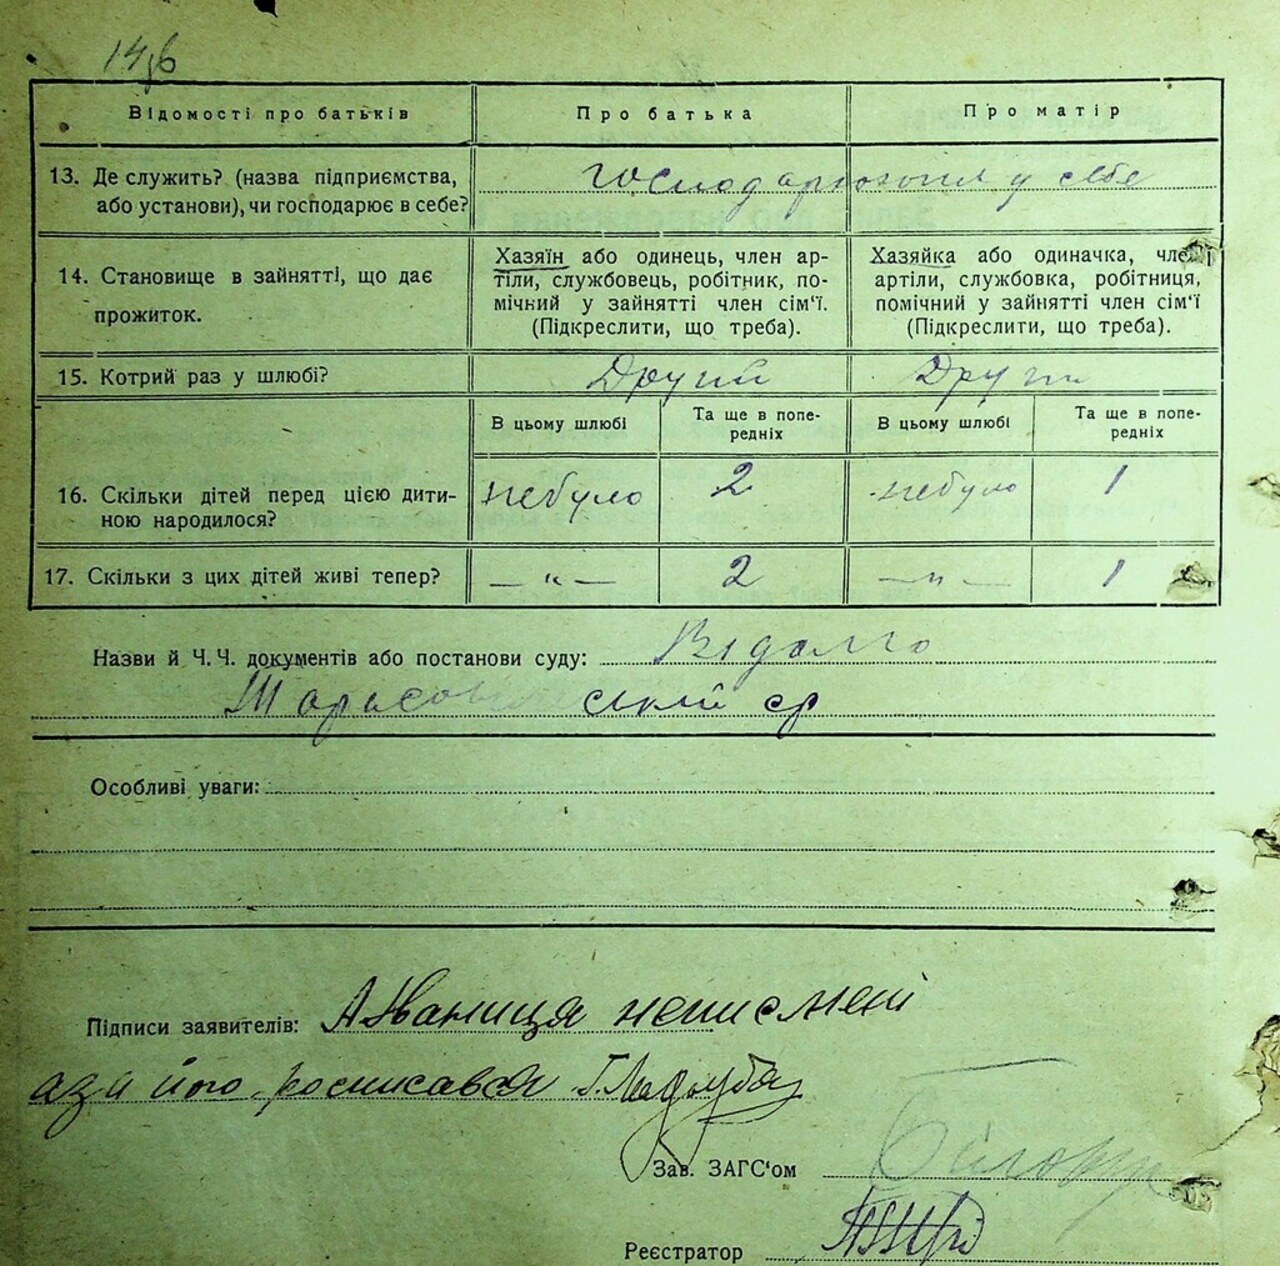 Відомості про батьків
Про батька
Про матір
13. Де служить? (назва підприємства,
або установи), чи господарює в себе?
у себе
14. Становище в зайнятті, що дає
прожиток.
Хазяїн або одинець, член ар-
тіли, службовець, робітник, по-
мічний у зайнятті член сім‘ї.
(Підкреслити, що треба).
Хазяйка або одиначка, член
артіли, службовка, робітниця,
помічний у зайнятті член сім‘ї
(Підкреслити, що треба).
15. Котрий раз у шлюбі?
Другий
Другий
В цьому шлюбі
Та ще в попе-
редніх
В цьому шлюбі
Та ще в попе-
редніх
16. Скільки дітей перед цією дити-
ною народилося?
небуло
2
небуло
1
17. Скільки з цих дітей живі тепер?
— „ —
2
— „ —
1
Назви й Ч.Ч. документів або постанови суду: Відомо
ср
Особливі уваги:
Підписи заявителів: неписмені
його росписався
Зав. ЗАГС‘ом
Реєстратор